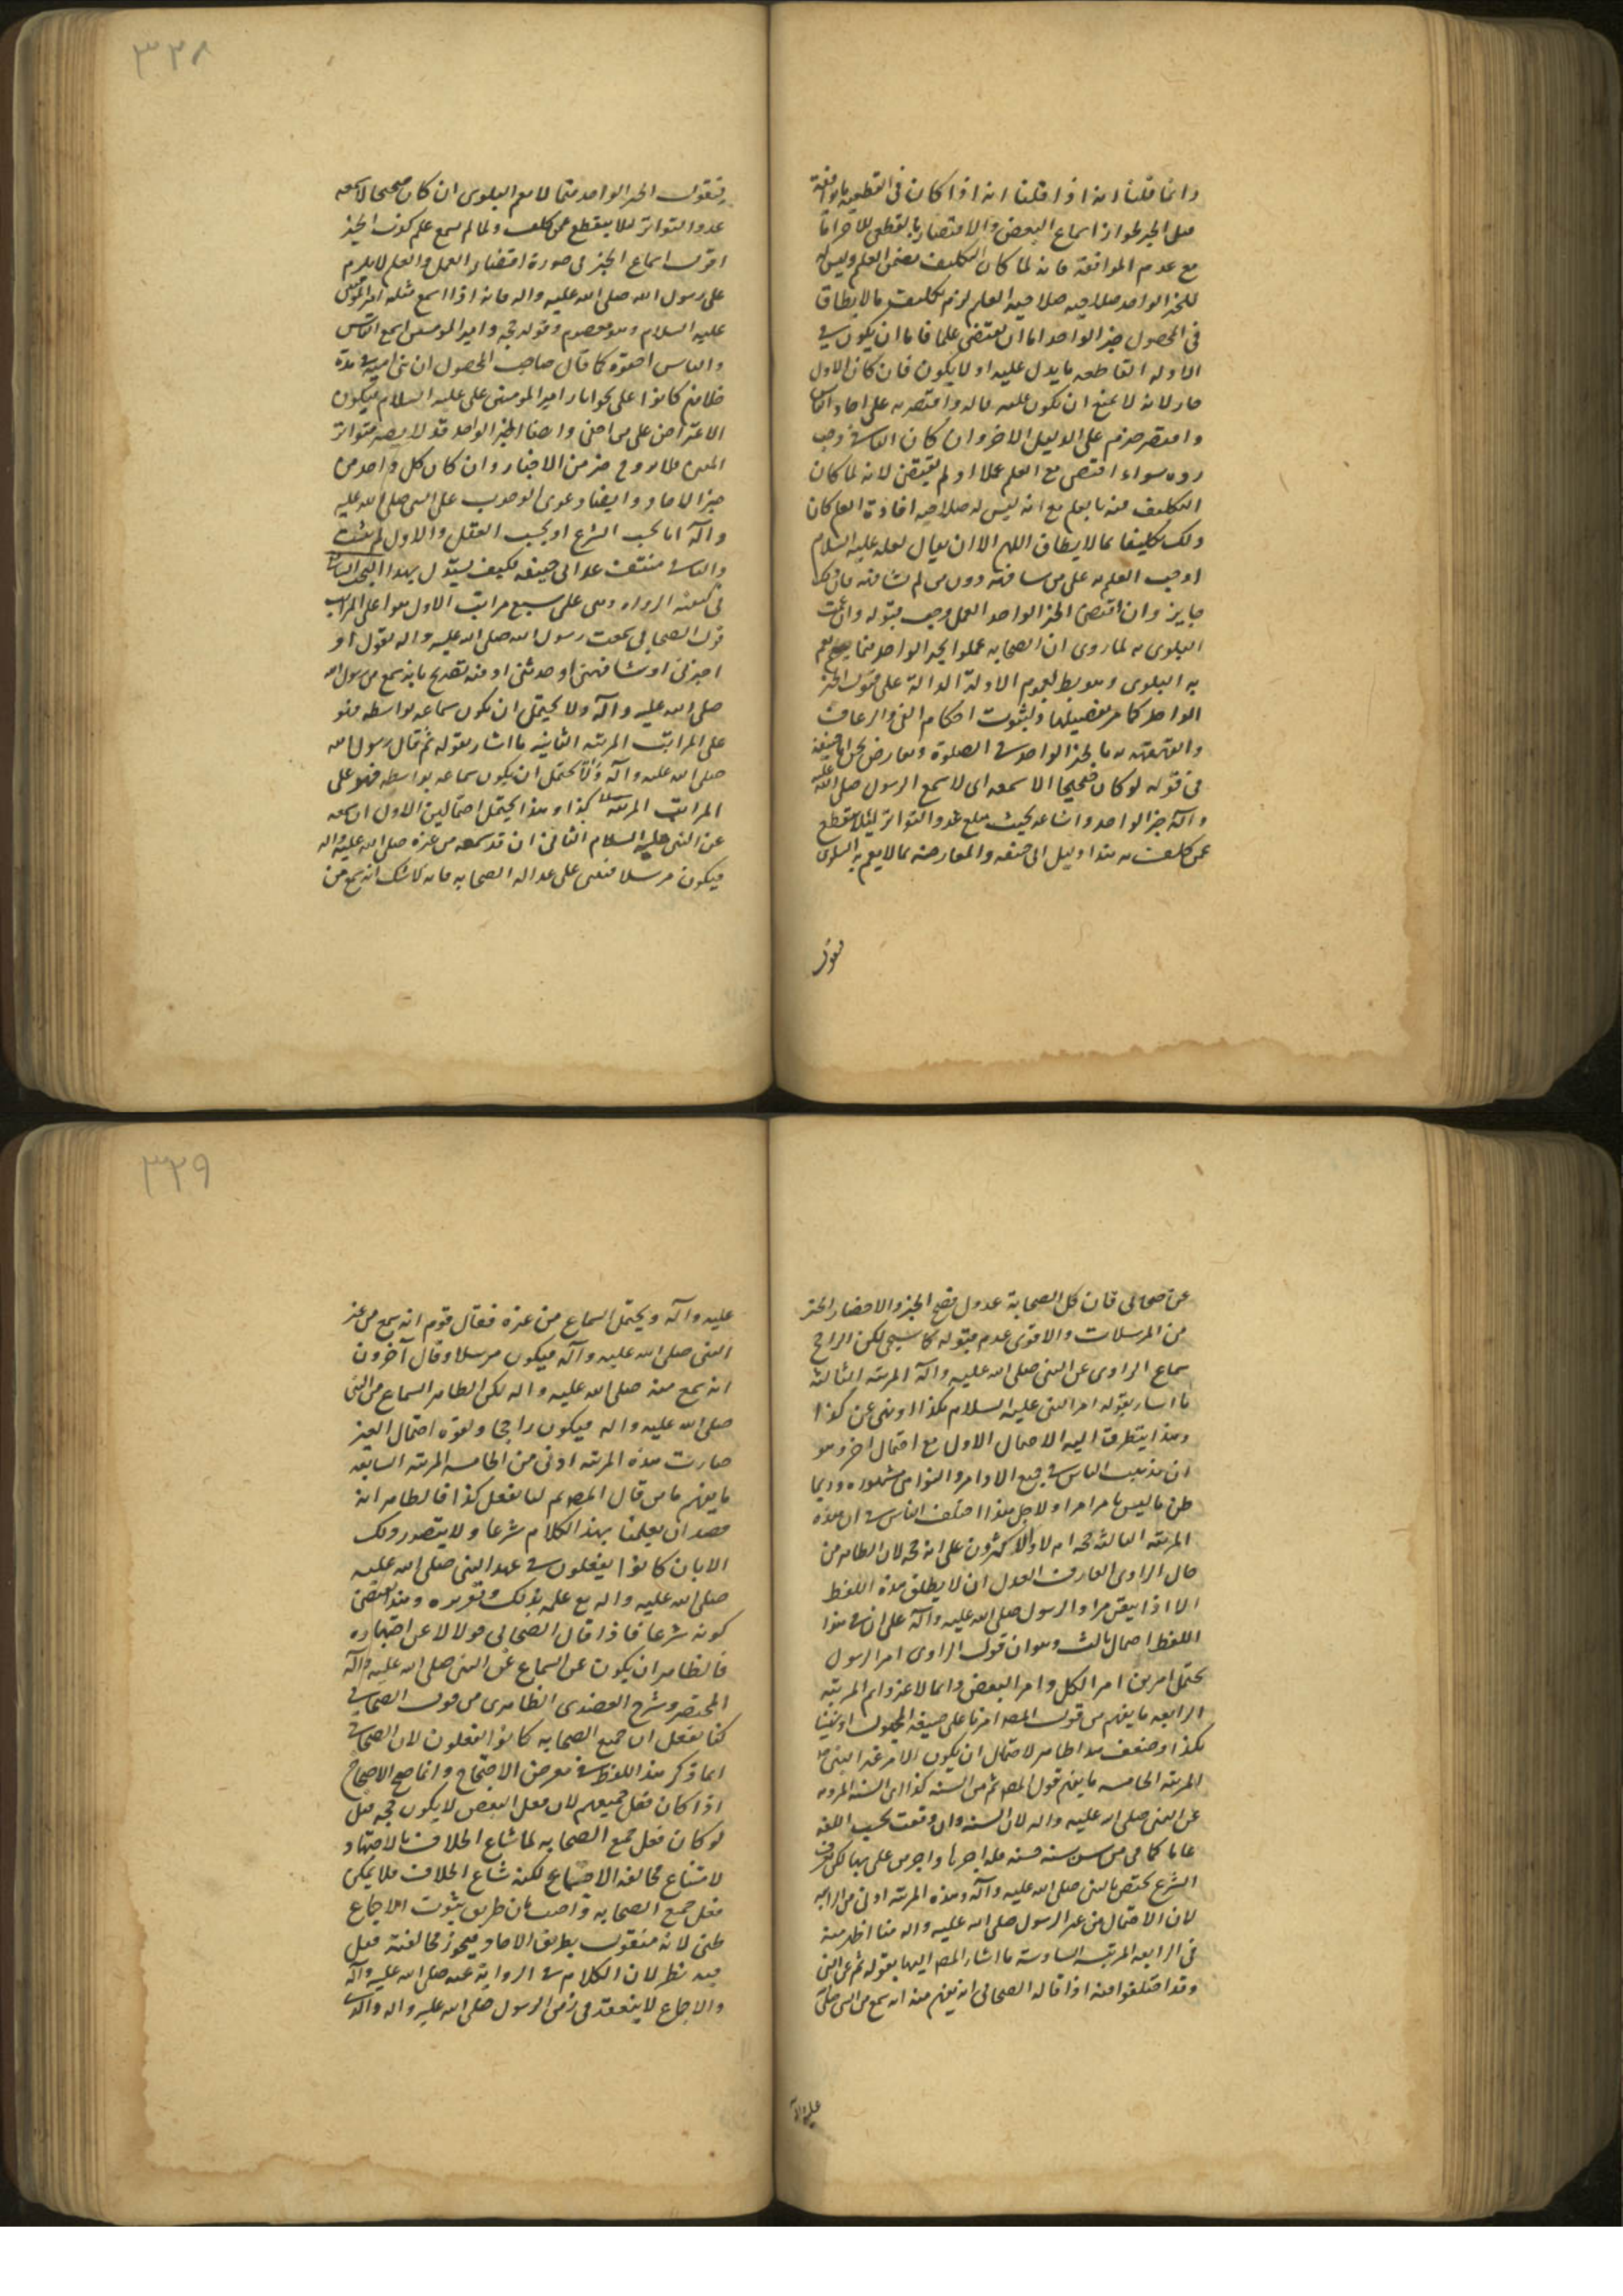 وانما قلنا انه اذا قلنا انه اذا كان فى القطعية ما يوافقه
قبل الخبر لجواز اسماع البعض والاقتصار بالقطعى للآخر اما
مع عدم الموافقة فانه لما كان التكليف يتضمن العلم وليس
للخبر الواحد صلاحية العلم لزم تكليف ما لا يطاق
فى المحصول خبر الواحد اما ان يقتضى علما فاما ان يكون فى
الادلة القاطعة ما يدل عليه او لا يكون فان كان الاول
جاز لانه لا يمتنع ان يكون عليه قاله واقتصر به على احاد الناس
واقتصر غيرهم على الدليل الاخر وان كان الثانى وجب
رده سواء اقتضى مع العلم عملا او لم يقتض لانه لما كان
التكليف فيه بالعلم مع انه ليس له صلاحية افادة العلم كان
ذلك تكليفا بما لا يطاق اللهم الا ان يقال لعله عليه السلام
اوجب العلم به على من شافهه دون من لم يشافهه فان
جايز وان اقتضى الخبر الواحد العمل وجب قبوله وان عمت
البلوى به لما روى ان الصحابه عملوا بخبر الواحد فيما يعم
به البلوى وهو بط لعموم الادلة الدالة على قبول الخبر
الواحد كما مر تفصيلها ولثبوت احكام القئ والرعاف
والقهقهه به بالخبر الواحد فى الصلوة وتعارض بحث ابا حنيفة
فى قوله لو كان صحيحا لا سمعه اى لاسمع الرسول صلى الله عليه
وآله خبر الواحد واشاعه بحيث يبلغ عدد التواتر لئلا يقطع
عن كلف به هذا دليل ابى حنيفه والمعارضه بما لا يعم به البلوى
فنقول
فنقول الخبر الواحد فيما لا يعم البلوى ان كان صحيحا لاسمعه
عدد التواتر لئلا ينقطع عمن كلف ولما لم يسمع علم كون الخبر
اقول اسماع الخبر فى صورة اقتضاء العمل والعلم لا يلزم
على رسول الله صلى الله عليه واله فانه اذا اسمع مثله امير المؤمنين
عليه السلام وهو معصوم وقوله حجه وامير المومنين اسمع الناس
والناس اخفوه كما قال صاحب المحصول ان بنى امية فى مدة
خلافتهم كانوا على محو اثار امير المومنين على عليه السلام فيكون
الاعتراض على من اخفى وايضا الخبر الواحد قد لا يصير متواتر
المعنى فلا يروى خبر من الاخبار وان كان كل واحد من
خبر الاحاد وايضا دعوى الوجوب على النبى صلى الله عليه
وآله اما بحسب الشرع او بحسب العقل والاول لم يثبت
والثانى منتف عند ابى حنيفه فكيف يستدل بهذا البحث الثانى
فى كيفية الرواه وهى على سبع مراتب الاول هو اعلى المراتب
قول الصحابى سمعت رسول الله صلى الله عليه واله يقول او
اخبرنى او شافهنى او حدثنى او فيه تصريح بانه سمع من رسول الله
صلى الله عليه وآله ولا يحتمل ان يكون سماعه بواسطه فهو
على المراتب المرتبه الثانيه ما اشار بقوله ثم قال رسول الله
صلى الله عليه وآله والا يحتمل ان يكون سماعه بواسطه فهو على
المراتب المرتبه كذا وهذا يحتمل احتمالين الاول ان سمعه
عن النبى عليه السلام الثانى ان قد سمعه من غيره صلى الله عليه واله
فيكون مرسلا فنبنى على عداله الصحابه فانه لا شك انه سمع من
عن صحابى فان كل الصحابة عدول فصح الخبر والاخضار الخبر
من المرسلات والاقوى عدم قبوله كما سيجئ لكن الراجح
سماع الراوى عن النبى صلى الله عليه وآله المرتبه الثالثه
ما اشار بقوله امر النبى عليه السلام بكذا او نهى عن كذا
وهذا يتطرق اليه الاحتمال الاول مع احتمال اخر وهو
ان مذهب الناس فى جميع الاوامر والنواهى مشهوره وربما
ظن ما ليس بامر امرا ولاجل هذا اختلف الناس فى ان هذه
المرتبه الثالثه حجه ام لا والاكثرون على انه حجه لان الظاهر من
حال الراوى العارف العدل ان لا يطلق هذه اللفظ
الا اذا تيقن مراد الرسول صلى الله عليه وآله على ان فى هذا
اللفظ احتمال ثالث وهو ان قول الراوى امر الرسول
يحتمل امرين امر الكل وامر البعض دائما لا غير دائم المرتبه
الرابعه ما يفهم من قول المصـ امرنا على صيغة المجهول او نهينا
بكذا وضعف هذا ظاهر لاحتمال ان يكون الامر غير النبى
المرتبه الخامسه ما يفهم قول المصـ ثم من السنه كذا اى السنه المرويه
عن النبى صلى الله عليه واله لان السنه وان وقعت بحسب اللغه
عاما كما فى من سن سنه حسنه فله اجرها واجر من عمل بها لكن عرف
الشرع يختص بالنبى صلى الله عليه وآله وهذه المرتبه ادنى من الرابعه
لان الاحتمال من غير الرسول صلى الله عليه واله هنا اظهر منه
فى الرابعه المرتبه السادسة ما اشار المصـ اليها بقوله ثم عن النبى
وقد اختلفوا فيه اذا قاله الصحابى انه يفهم منه انه سمع من النبى صلى
عليه وآله
عليه وآله ويحتمل السماع من غيره فقال قوم انه سمع من غير
النبى صلى الله عليه وآله فيكون مرسلا وقال آخرون
انه سمع منه صلى الله عليه واله لكن الظاهر السماع من النبى
صلى الله عليه واله فيكون راجحا ولقوه احتمال الغير
صارت هذه المرتبه ادنى من الخامسه المرتبه السابعه
ما يفهم ما من قال المصـ ثم كنا نفعل كذا فالظاهر انه
قصد ان يعلمنا بهذا الكلام شرعا ولا يتصور ذلك
الا بان كانوا يفعلون فى عهد النبى صلى الله عليه
صلى الله عليه واله مع علمه بذلك وتقريره وهذا يقتضى
كونه شرعا فاذا قال الصحابى قولا لا عن اجتهاده
فالظاهر ان يكون عن السماع عن النبى صلى الله عليه وآله
المختصر وشرح العضدى الظاهرى من قول الصحابى
كنا نفعل ان جميع الصحابه كانوا يفعلون لان الصحابى
انما ذكر هذا اللفظ فى معرض الاحتجاج وانما صح الاحتجاج
اذا كان فعل جميعهم لان فعل البعض لا يكون حجه قيل
لو كان فعل جميع الصحابه لما شاع الخلاف بالاجتهاد
لامتناع مخالفه الاجماع لكنه شاع الخلاف فلا يمكن
فعل جميع الصحابه واجيب بان طريق ثبوت الاجماع
ظنى لانه منقول بطريق الاحاد فيجوز مخالفته قيل
فيه نظر لان الكلام فى الرواية عنه صلى الله عليه وآله
والاجماع لا ينعقد فى زمن الرسول صلى الله عليه واله وآله
٣٣٨
٣٣٩